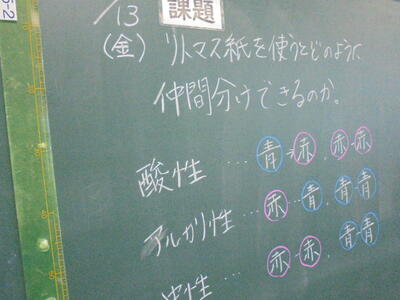 課題
/13
(金) リトマス紙を使うとどのように
仲間分けできるのか。
酸性 … 青→赤、赤-赤
アルカリ性 … 赤-青、青-青
中性 … 赤-赤、青-青